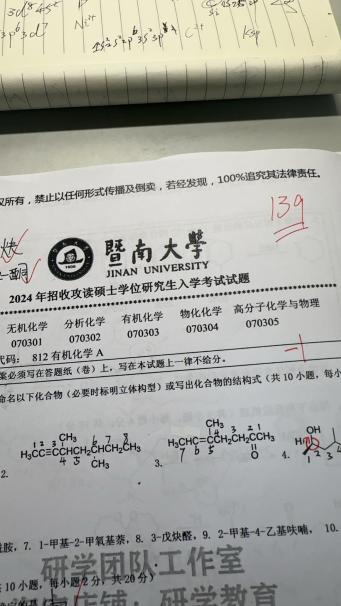 3d⁸4s²
Ni²⁺
1s²2s²2p⁶3s²3p
Ksp
权所有，禁止以任何形式传播及倒卖，若经发现，100%追究其法律责任。
139
炔
酮
暨南大学
JINAN UNIVERSITY
2024 年招收攻读硕士学位研究生入学考试试题
无机化学 分析化学 有机化学 物化化学 高分子化学与物理
070301 070302 070303 070304 070305
代码： 812 有机化学 A
案必须写在答题纸（卷）上，写在本试题上一律不给分。
-1
命名以下化合物（必要时标明立体构型）或写出化合物的结构式（共 10 小题，每小
CH₃
1 2 3 6 7 8
H₃CC≡CCHCH₂CHCH₂CH₃
4 5 CH₃
2.
CH₃
4 3 2 1
H₃CHC=CCH₂CH₂CCH₃
7 6 5 O
3.
OH
H
4.
1 2 3
胺，7. 1-甲基-2-甲氧基萘，8. 3-戊炔醛，9. 2-甲基-4-乙基呋喃， 10.
研学团队工作室
10 小题，每小题 2 分，共 20 分）
店铺：研学教育